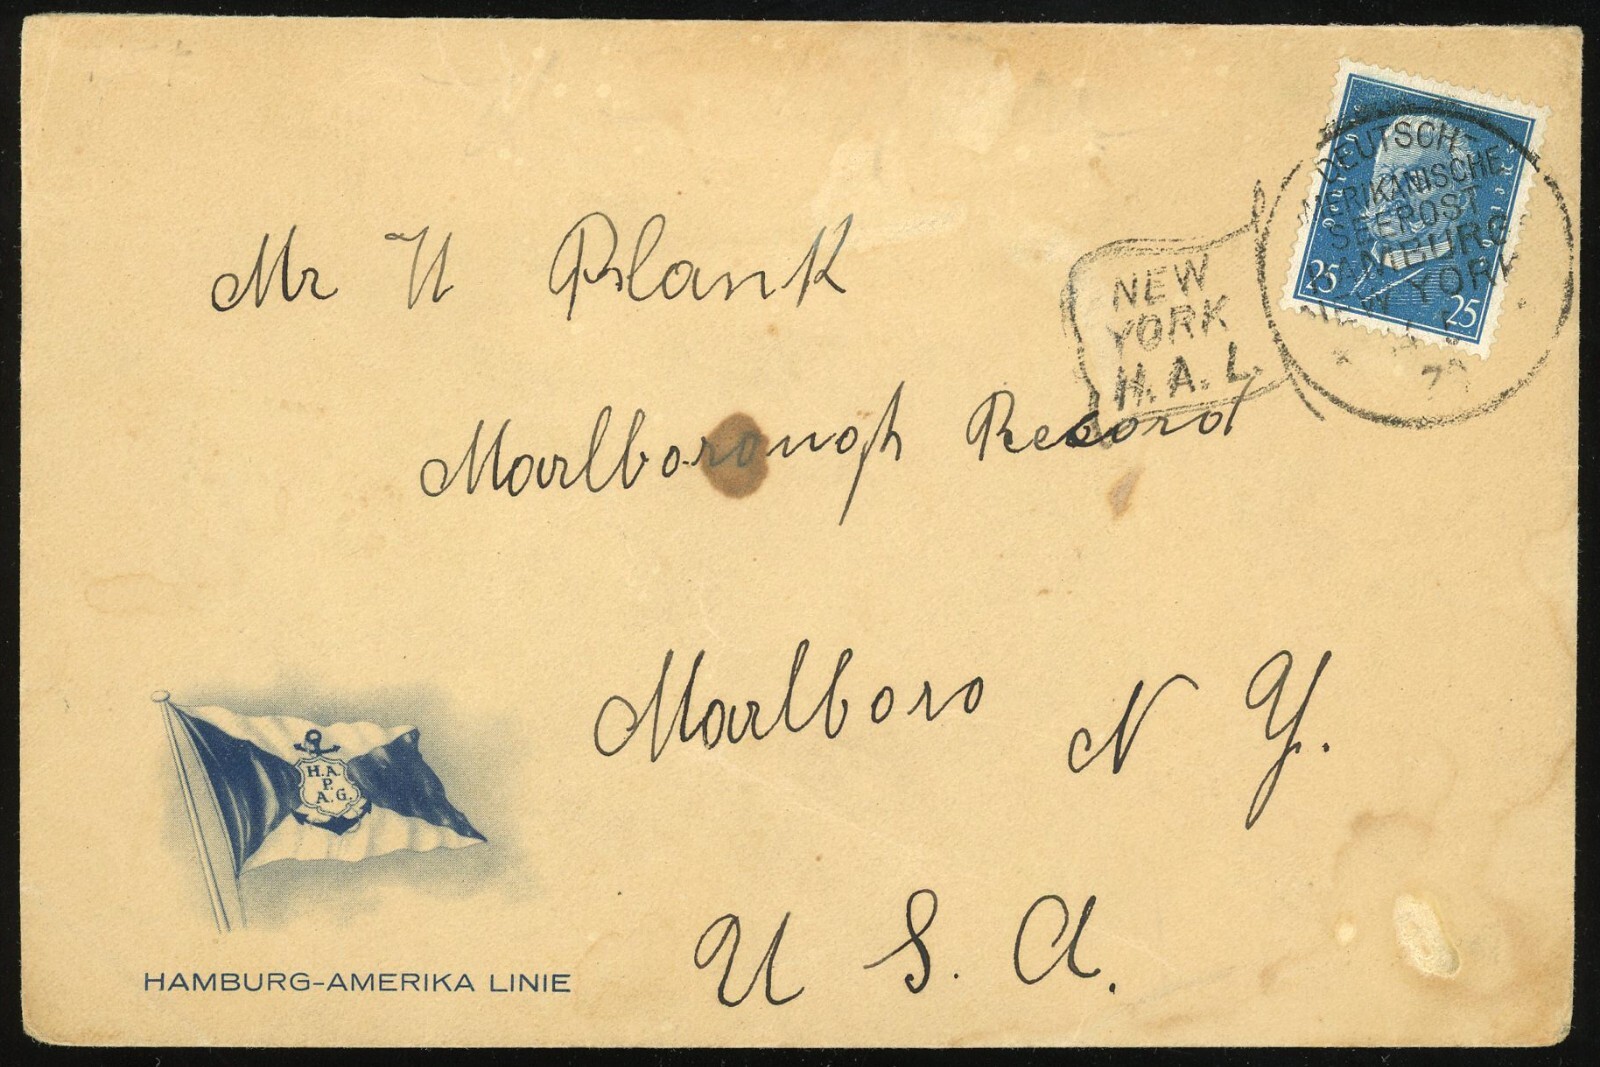 DEUTSCH-
AMERIKANISCHE
SEEPOST
HAMBURG
NEW YORK
25 25
NEW
YORK
H.A.L.
Mr H Blank
Marlborough Record
Marlboro N Y.
U S. A.
H.A.
P.
A.G.
HAMBURG-AMERIKA LINIE